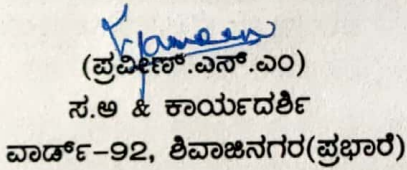 (ಪ್ರವೀಣ್.ಎಸ್.ಎಂ)
ಸ.ಅ & ಕಾರ್ಯದರ್ಶಿ
ವಾರ್ಡ್-92, ಶಿವಾಜಿನಗರ(ಪ್ರಭಾರೆ)